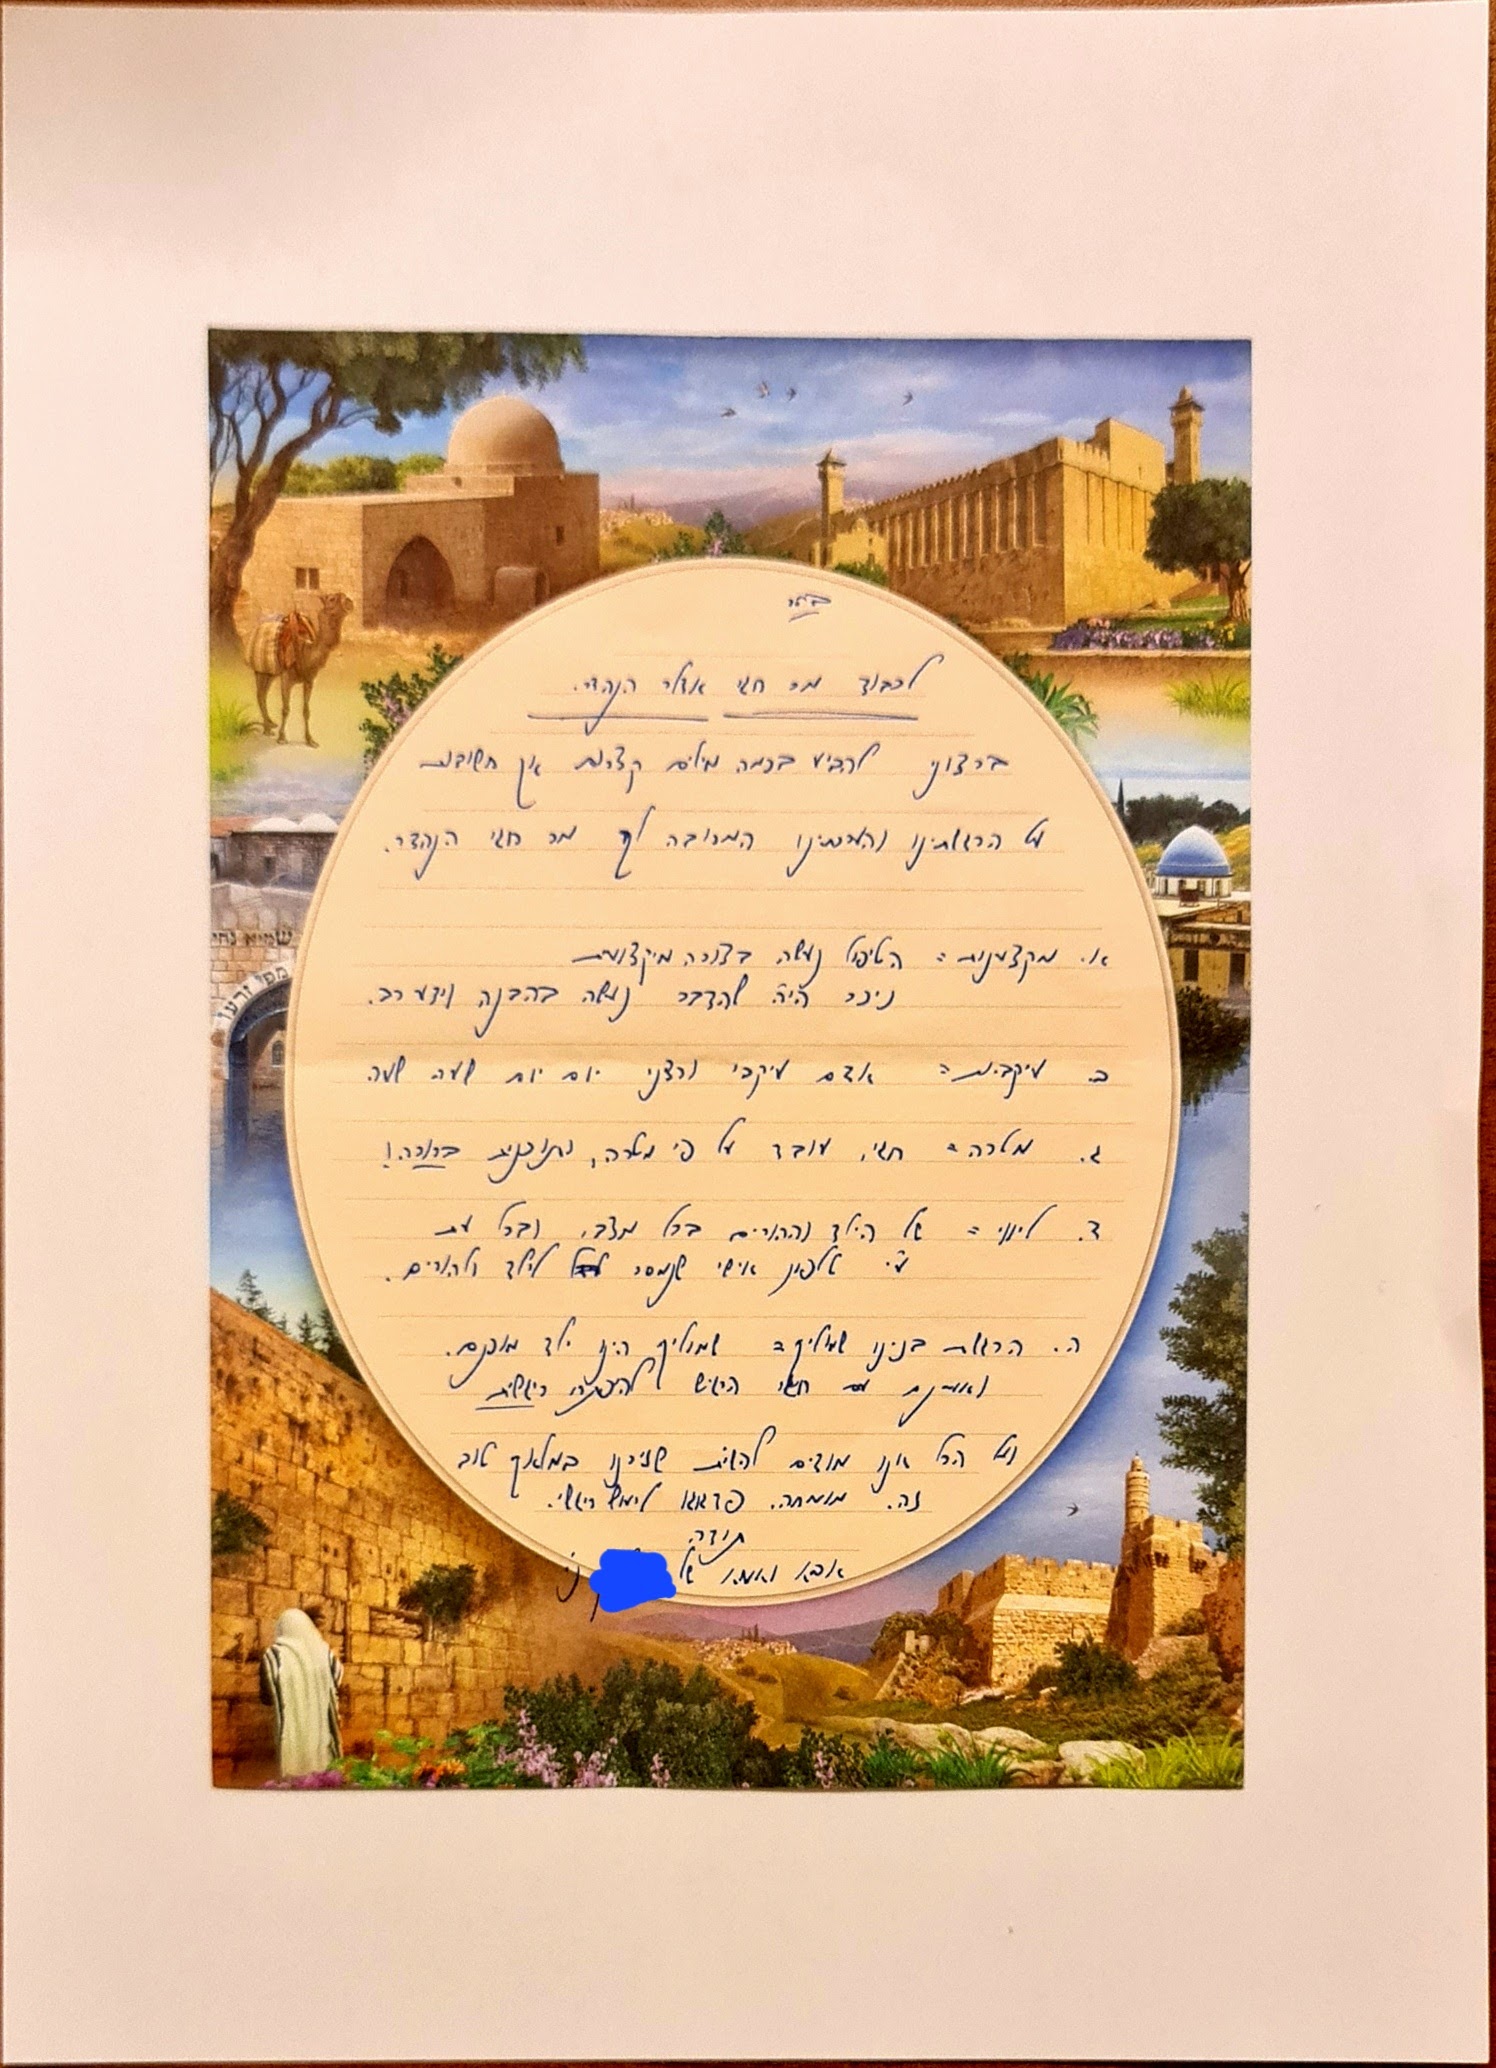 בס"ד
לכבוד מר חגי אדלר הנהדר.
ברצוני להביע בכמה מילים קצרות אך חשובות
על הרגשתינו והערכתינו המרובה לך מר חגי הנהדר.
שמיא נחי
מפי זרעו
א. מקצענות= הטיפול נעשה בצורה מיקצועית
ניכר היה שהדבר נעשה בהבנה וידע רב.
ב. עיקביות= אדם עיקבי ורצני יום יום שעה שעה
ג. מטרה= חגי, עובד על פי מטרה, ותוכנית ברורה!
ד. ליווי= של הילד וההורים בכל מצב, ובכל עת
ע"י טלפון אישי שנמסר לילד ולהורים.
ה. הרגשת בנינו שמוליק= שמוליק הינו ילד מופנם.
ואומנם עם חגי הרגיש להיפתח ריגשית
ועל הכל אנו מודים להשי"ת שזיכנו במלאך טוב
זה. מומחה. פדגוג לימודי ריגשי.
תודה
אבא ואמא של ני"